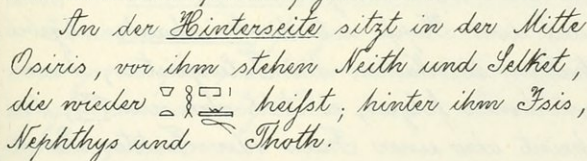 An der Hinterseite sitzt in der Mitte
Osiris, vor ihm stehen Neith und Selket,
die wieder heißt; hinter ihm Isis,
Nephthys und Thoth.